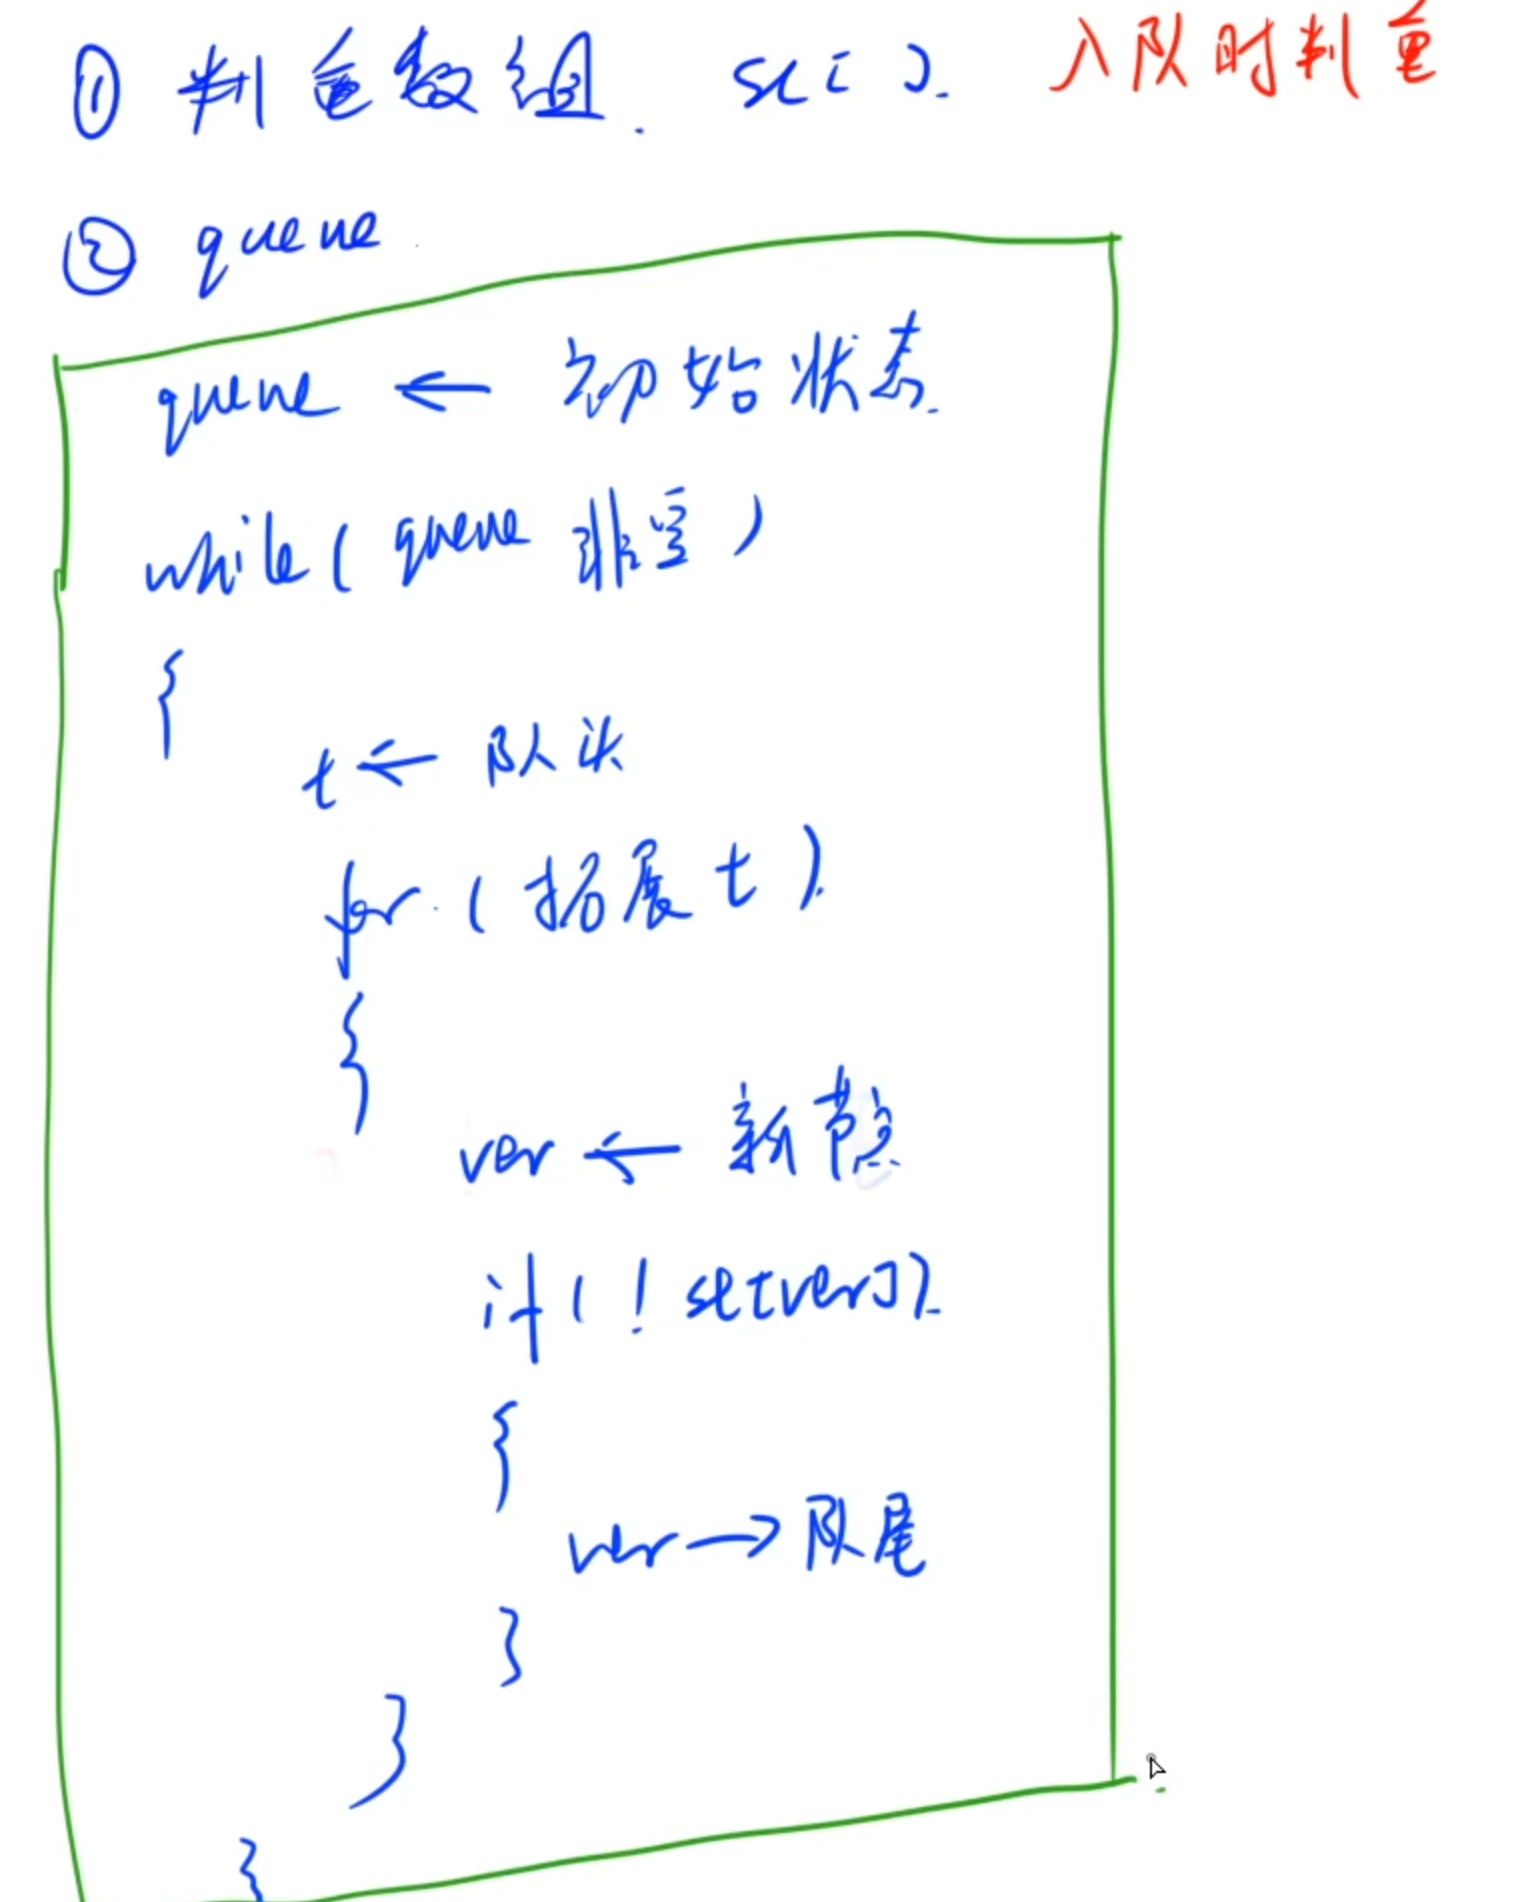 ① 判重数组. st[]. 入队时判重
② queue
queue ← 初始状态.
while( queue 非空 )
{
t ← 队头
for ( 拓展 t ).
{
ver ← 新节点
if ( ! st[ver] ).
{
ver → 队尾
}
}
}